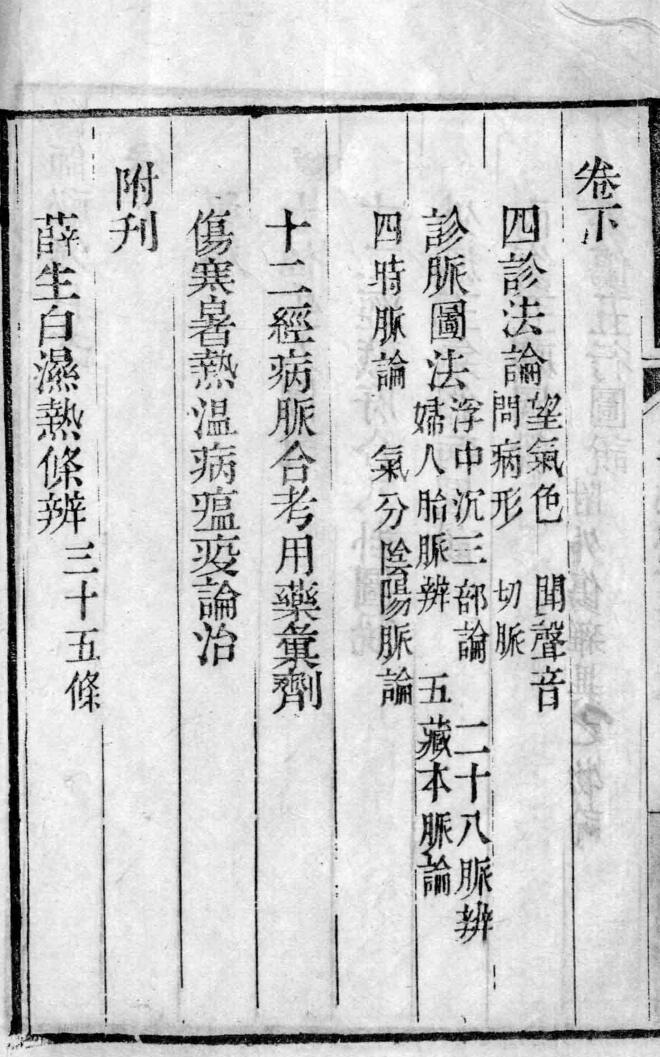 卷下
四診法論 望氣色 聞聲音
問病形 切脈
診脈圖法 浮中沉三部論 二十八脈辨
婦人胎脈辨 五藏本脈論
四時脈論 氣分陰陽脈論
十二經病脈合考用藥彙劑
傷寒暑熱溫病瘟疫論治
附刊
薛生白濕熱條辨 三十五條